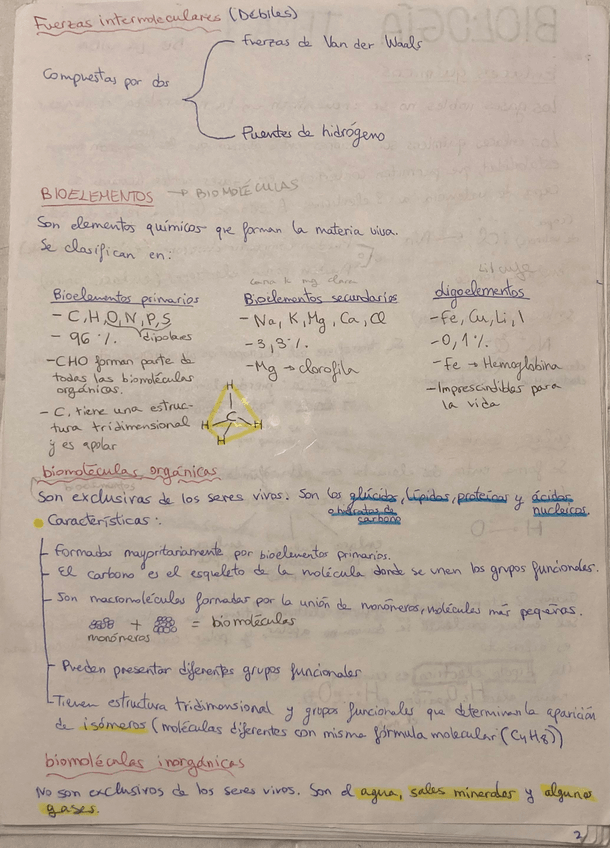 Fuerzas intermoleculares (Débiles)
fuerzas de Van der Waals
Compuestas por dos
Puentes de hidrógeno
BIOELEMENTOS → BIOMOLÉCULAS
Son elementos químicos que forman la materia viva.
Se clasifican en:
Bioelementos primarios
- C, H, O, N, P, S
- 96 %. dipolares
- CHO forman parte de
todas las biomoléculas
orgánicas.
- C, tiene una estruc-
tura tridimensional
y es apolar
H
C
H H
H
cana k mg clava
Bioelementos secundarios
- Na, K, Mg, Ca, Cl
- 3,3 %.
- Mg → clorofila
oligoelementos
- Fe, Cu, Li, I
- 0,1 %.
- Fe → Hemoglobina
- Imprescindibles para
la vida
biomoléculas orgánicas
Son exclusivas de los seres vivos. Son los glúcidos, lípidos, proteicas y ácidos
ohidratos de nucleicos.
carbono
Características:
- Formadas mayoritariamente por bioelementos primarios.
- El carbono es el esqueleto de la molécula donde se unen los grupos funcionales.
- Son macromoléculas formadas por la unión de monómeros, moléculas más pequeñas.
+ = biomoléculas
monómeros
- Pueden presentar diferentes grupos funcionales
- Tienen estructura tridimensional y grupos funcionales que determinan la aparición
de isómeros (moléculas diferentes con misma fórmula molecular (C4H8))
biomoléculas inorgánicas
No son exclusivos de los seres vivos. Son el agua, sales minerales y algunos
gases.
2